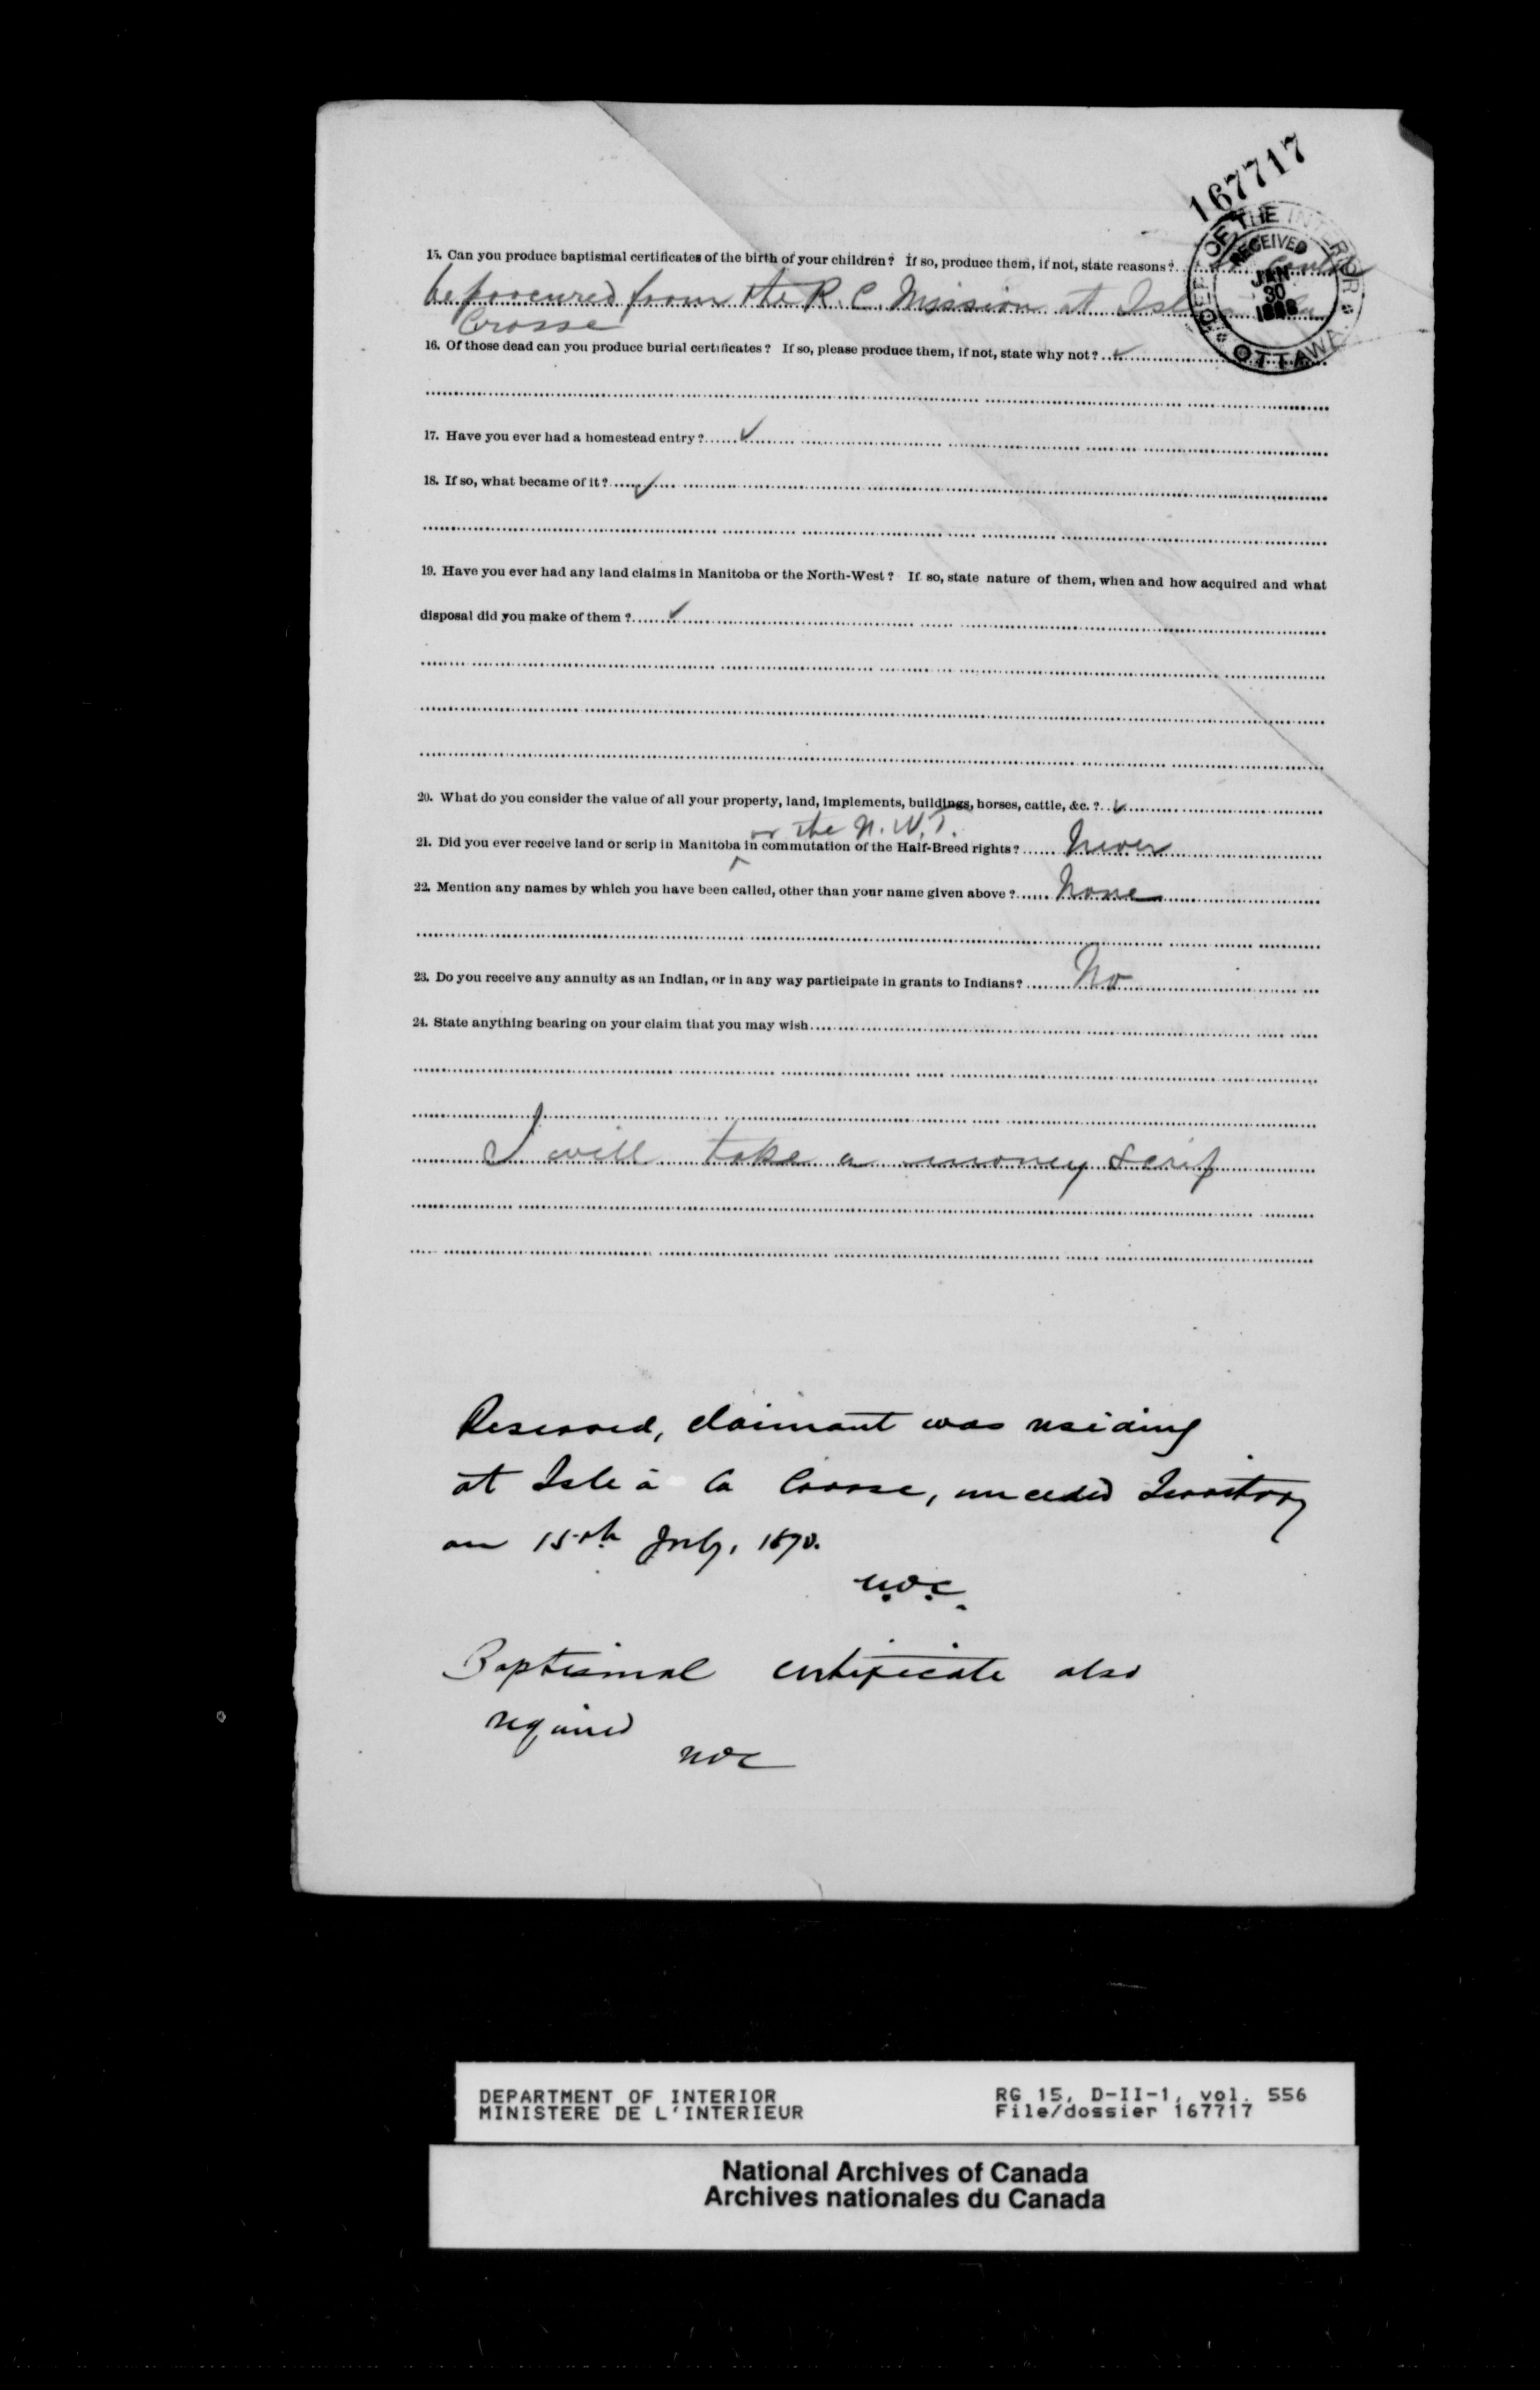 167717
DEPT OF THE INTERIOR
RECEIVED
JAN
30
1888
OTTAWA
15. Can you produce baptismal certificates of the birth of your children? If so, produce them, if not, state reasons? Could
be procured from the R. C. Mission at Isle a La
Crosse
16. Of those dead can you produce burial certificates? If so, please produce them, if not, state why not? ✓
17. Have you ever had a homestead entry? ✓
18. If so, what became of it? ✓
19. Have you ever had any land claims in Manitoba or the North-West? If so, state nature of them, when and how acquired and what
disposal did you make of them? ✓
20. What do you consider the value of all your property, land, implements, buildings, horses, cattle, &c.? ✓
or the N. W. T.
21. Did you ever receive land or scrip in Manitoba in commutation of the Half-Breed rights? Never
22. Mention any names by which you have been called, other than your name given above? None
23. Do you receive any annuity as an Indian, or in any way participate in grants to Indians? No
24. State anything bearing on your claim that you may wish
I will take a money scrip
Reserved, claimant was residing
at Isle à la Crosse, unceded Territory
on 15th July, 1870.
Baptismal certificate also
required
DEPARTMENT OF INTERIOR
MINISTERE DE L'INTERIEUR
RG 15, D-II-1, vol. 556
File/dossier 167717
National Archives of Canada
Archives nationales du Canada